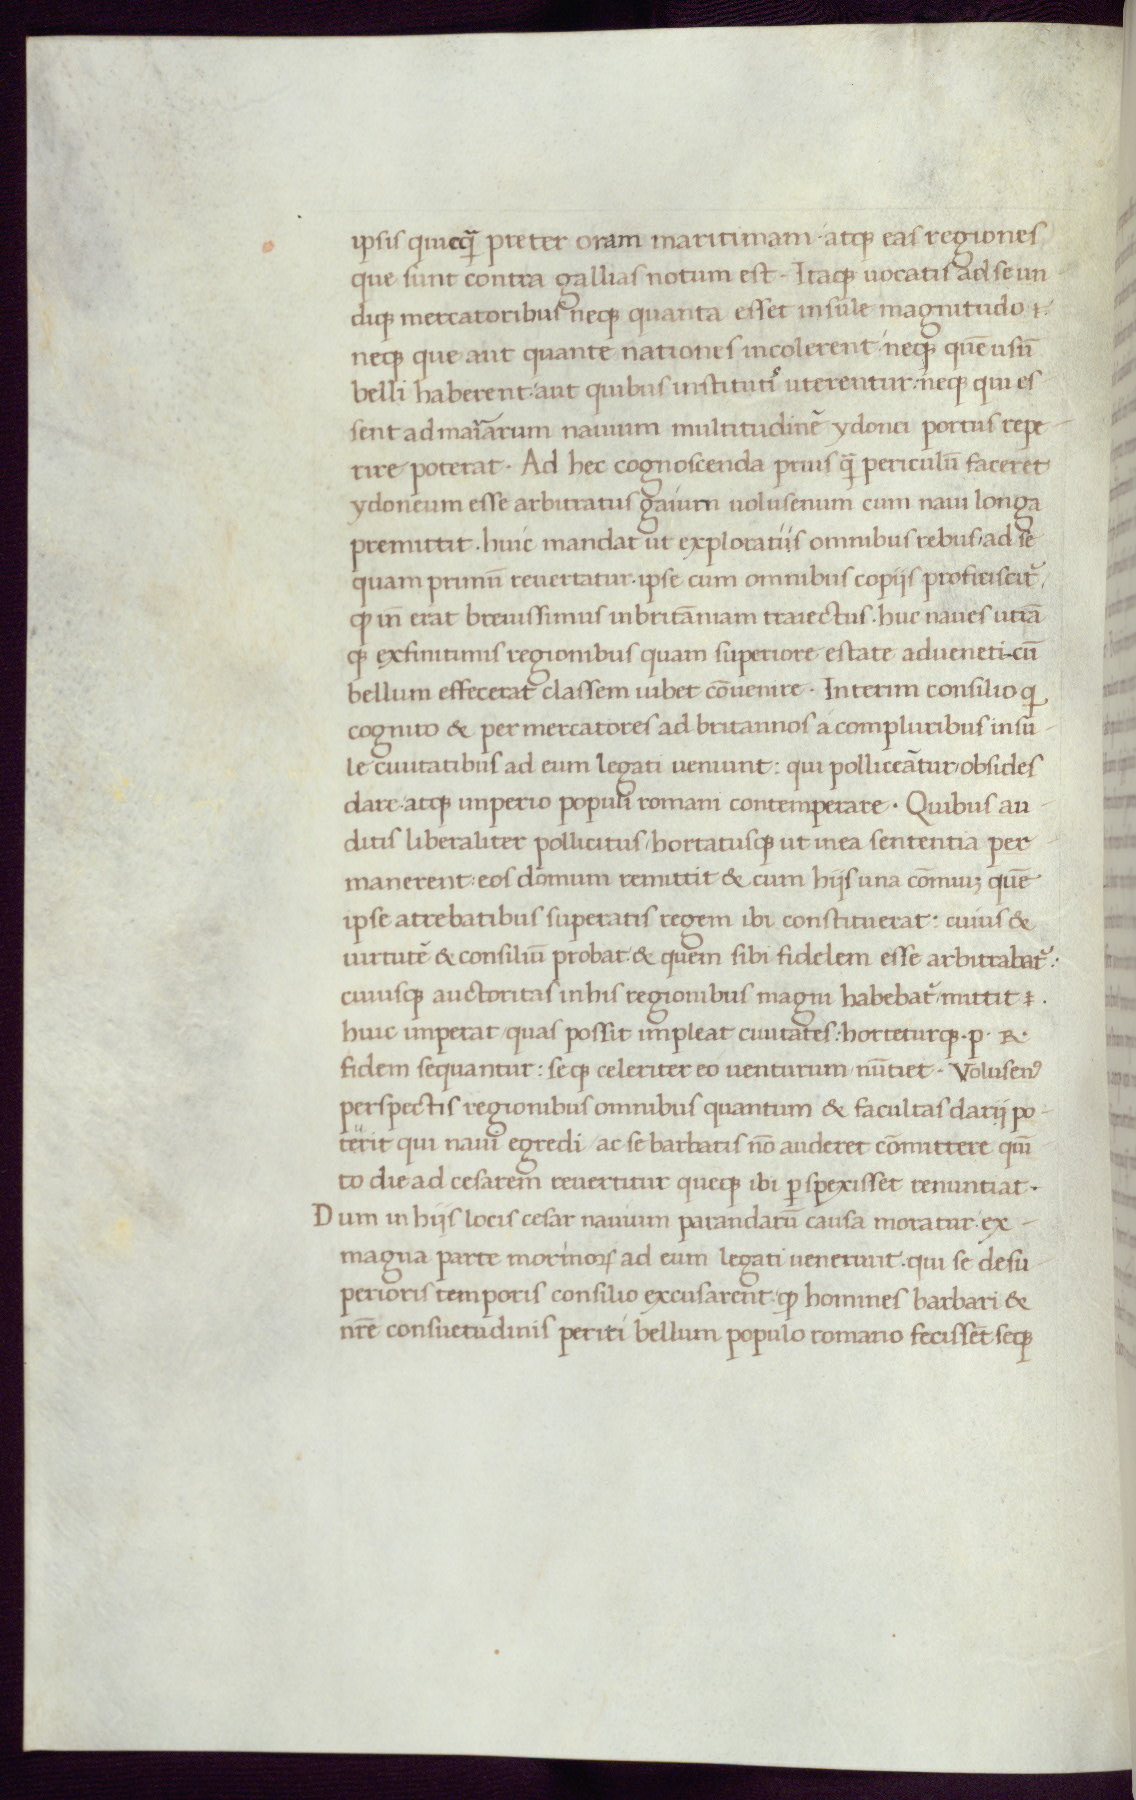 ipsis quicq̃ preter oram maritimam · atq; eas regiones
que sunt contra gallias notum est · Itaq; uocatis ad se un
diq; mercatoribus neq; quanta esset insule magnitudo
neq; que aut quante nationes incolerent · neq; quē usū
belli haberent : aut quibus institutis uterentur : neq; qui es
sent ad maiarum nauium multitudinē ydonei portus repe
rire poterat · Ad hec cognoscenda prius q̃ periculū faceret
ydoneum esse arbitratus gaium uolusenum cum naui longa
premittit . huic mandat ut exploratijs omnibus rebus / ad se
quam primū reuertatur . ipse cum omnibus copijs proficiscit᷑ /
q; in erat breuissimus in britāniam traiectus . huc naues
q; ex finitimis regionibus quam superiore estate ad ueneti cū
bellum effecerat classem uibet cōuenire · Interim consilio
cognito & per mercatores ad britannos a compluribus insu
le ciuitatibus ad eum legati ueniunt : qui polliceātur / obsides
dare · atq; imperio populi romani contemperare · Quibus au
ditis liberaliter pollicitus / hortatusq; ut in ea sententia per
manerent : eos domum remittit & cum hijs una cōmiuz quē
ipse atrebatibus superatis regem ibi constituerat : cuius &
uirtutē & consiliū probat · & quem sibi fidelem esse arbitrabat᷑ :
cuiusq; auctoritas in his regionibus magni habebat᷑ / mittit .
huic imperat / quas possit impleat ciuitates : horteturq; · p · R ·
fidem sequantur : seq; celeriter eo uenturum / nūtiet · Volusenꝰ
perspectis regionibus omnibus quantum & facultas darij po
terit qui naui egredi ac se barbaris nō auderet cōmittere
to die ad cesarem reuertitur queq; ibi ꝑspexisset renuntiat ·
Dum in hijs locis cesar nauium parandarū causa moratur · ex
magna parte morinoꝝ ad eum legati uenerunt . qui se de su
perioris temporis consilio excusarent · q; homines barbari &
nr̄e consuetudinis periti bellum populo romano fecissēt seq;